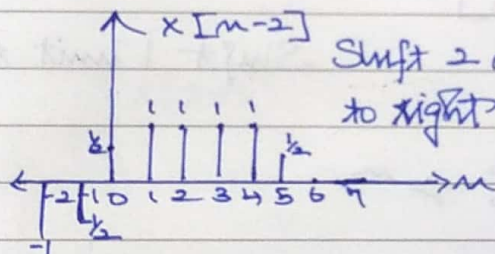 x[n-2]
Shift 2
to right
1 1 1 1
1/2 1/2
-2 -1 0 1 2 3 4 5 6 7 n
-1 -1/2